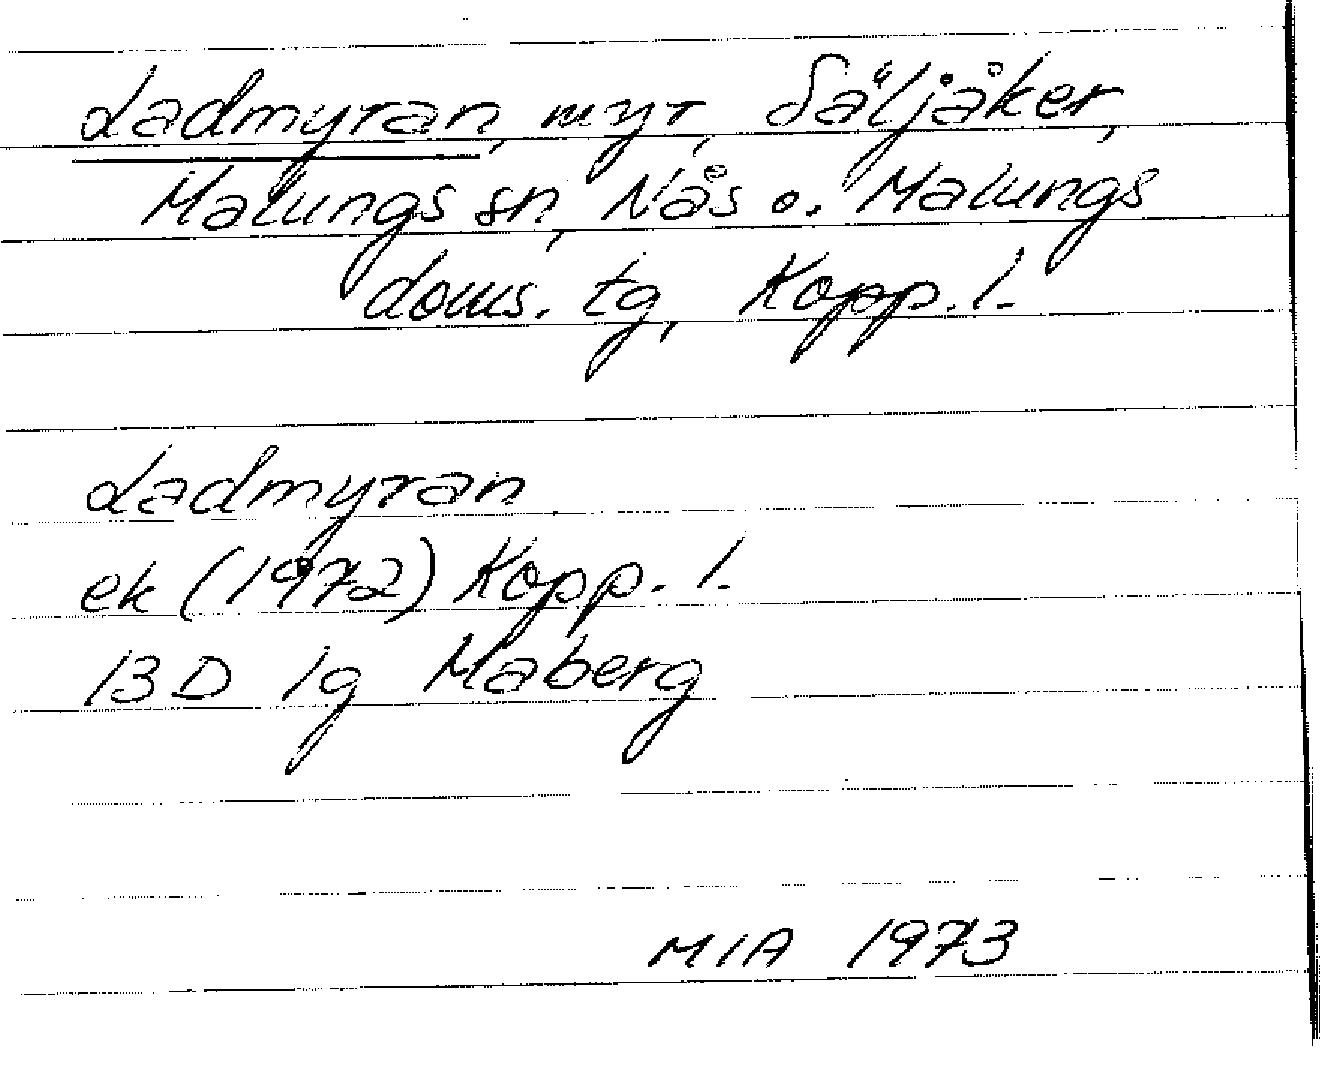 Ladmyran, myr, Säljåker,
Malungs sn, Nås o. Malungs
doms. tg, Kopp. l.
Ladmyran
ek (1972) Kopp. l.
13 D 1g Maberg
MIA 1973